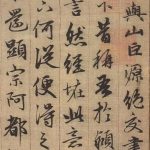 與山巨源絕交書
下昔稱吾於潁
言然經怪此意
下何從便得之
還顯宗阿都